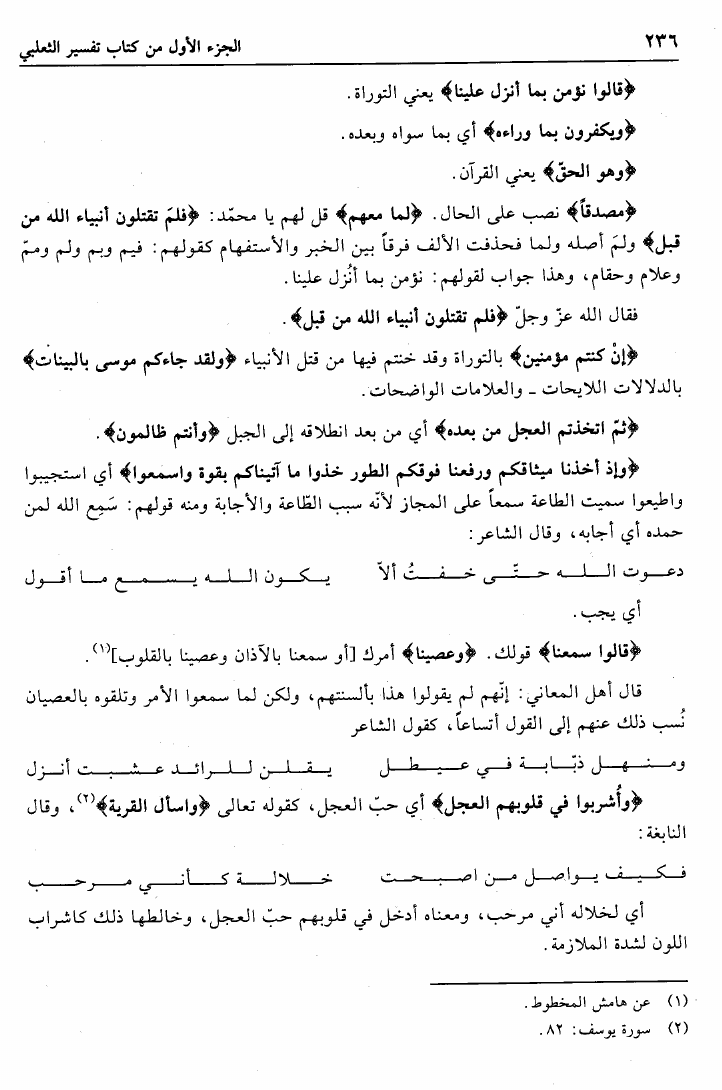 ٢٣٦ الجزء الأول من كتاب تفسير الثعلبي
﴿قالوا نؤمن بما أنزل علينا﴾ يعني التوراة.
﴿ويكفرون بما وراءه﴾ أي بما سواه وبعده.
﴿وهو الحقّ﴾ يعني القرآن.
﴿مصدقاً﴾ نصب على الحال. ﴿لما معهم﴾ قل لهم يا محمّد: ﴿فلمَ تقتلون أنبياء الله من
قبل﴾ ولمَ أصله ولما فحذفت الألف فرقاً بين الخبر والأستفهام كقولهم: فيم وبم ولم وممّ
وعلام وحقام، وهذا جواب لقولهم: نؤمن بما أُنزل علينا.
فقال الله عزّ وجلّ ﴿فلم تقتلون أنبياء الله من قبل﴾.
﴿إنْ كنتم مؤمنين﴾ بالتوراة وقد ختتم فيها من قتل الأنبياء ﴿ولقد جاءكم موسى بالبينات﴾
بالدلالات اللايحات - والعلامات الواضحات.
﴿ثمّ اتخذتم العجل من بعده﴾ أي من بعد انطلاقه إلى الجبل ﴿وأنتم ظالمون﴾.
﴿وإذ أخذنا ميثاقكم ورفعنا فوقكم الطور خذوا ما آتيناكم بقوة واسمعوا﴾ أي استجيبوا
واطيعوا سميت الطاعة سمعاً على المجاز لأنّه سبب الطّاعة والأجابة ومنه قولهم: سَمِع الله لمن
حمده أي أجابه، وقال الشاعر:
دعوت الله حتّى خفتُ ألاّ يكون الله يسمع ما أقول
أي يجب.
﴿قالوا سمعنا﴾ قولك. ﴿وعصينا﴾ أمرك [أو سمعنا بالآذان وعصينا بالقلوب](١).
قال أهل المعاني: إنّهم لم يقولوا هذا بألسنتهم، ولكن لما سمعوا الأمر وتلقوه بالعصيان
نُسب ذلك عنهم إلى القول أتساعاً، كقول الشاعر
ومنهل ذبّابة في عيطل يقلن للرائد عشبت أنزل
﴿وأُشربوا في قلوبهم العجل﴾ أي حبّ العجل، كقوله تعالى ﴿واسأل القرية﴾(٢)، وقال
النابغة:
فكيف يواصل من اصبحت خلالة كأني مرحب
أي لخلاله أني مرحب، ومعناه أدخل في قلوبهم حبّ العجل، وخالطها ذلك كاشراب
اللون لشدة الملازمة.
(١) عن هامش المخطوط.
(٢) سورة يوسف: ٨٢.